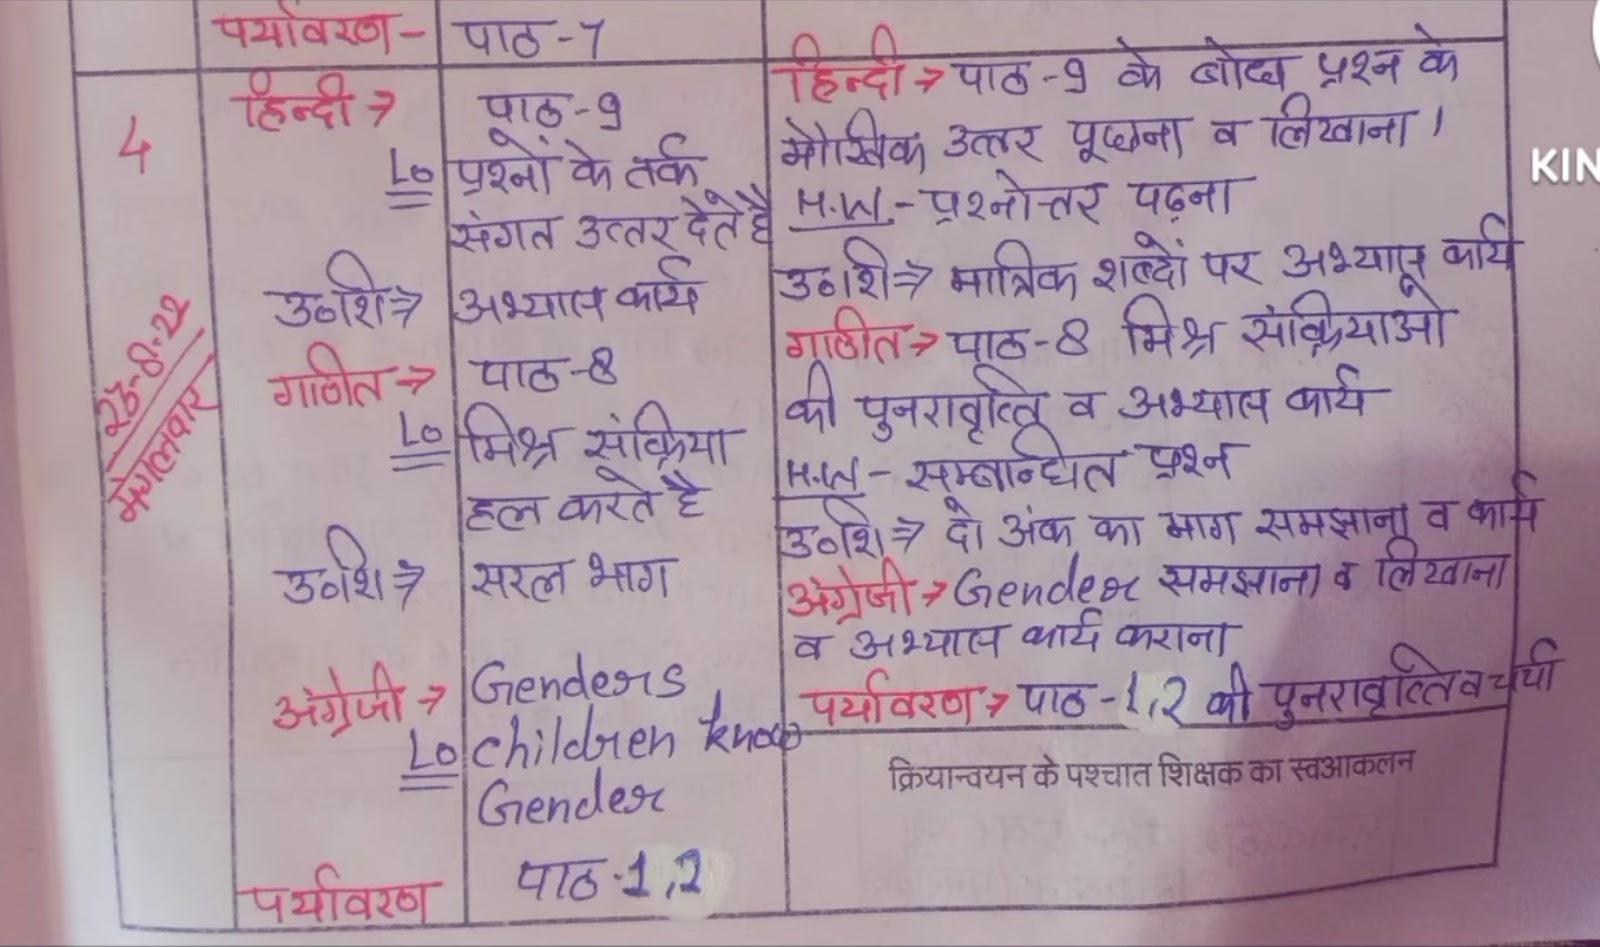 पर्यावरण -
पाठ - 7
4
23-8-22
मंगलवार
हिन्दी →
पाठ - 9
LO
प्रश्नों के तर्क
संगत उत्तर देते है
उ०शि⇒
अभ्यास कार्य
गणित →
पाठ - 8
LO
मिश्र संक्रिया
हल करते है
उ०शि⇒
सरल भाग
अंग्रेजी →
Genders
LO
children know
Gender
पर्यावरण
पाठ - 1,2
हिन्दी → पाठ - 9 के बोध प्रश्न के
मौखिक उत्तर पूछना व लिखाना ।
H.W. - प्रश्नोत्तर पढ़ना
उ०शि⇒ मात्रिक शब्दों पर अभ्यास कार्य
गणित → पाठ - 8 मिश्र संक्रियाओं
की पुनरावृत्ति व अभ्यास कार्य
H.W - सम्बन्धित प्रश्न
उ०शि⇒ दो अंक का भाग समझाना व कार्य
अंग्रेजी → Gender समझाना व लिखाना
व अभ्यास कार्य कराना
पर्यावरण → पाठ - 1,2 की पुनरावृत्ति व चर्चा
क्रियान्वयन के पश्चात शिक्षक का स्वआकलन
KIN